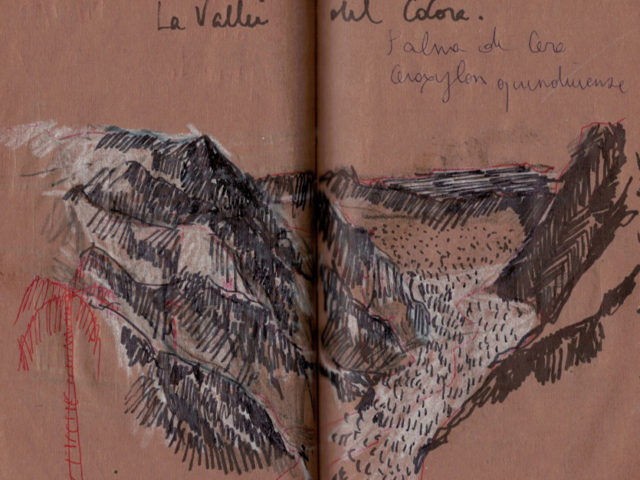 La Vallei del Cocora.
Palma di Cera
Ceroxylon quindiuense